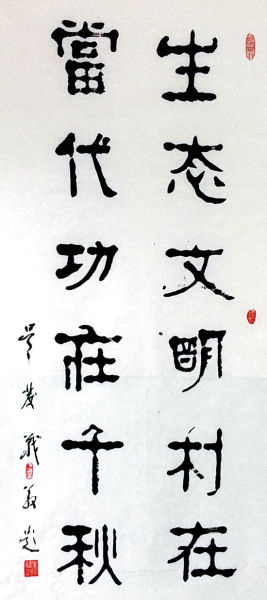 生态文明村在
當代功在千秋